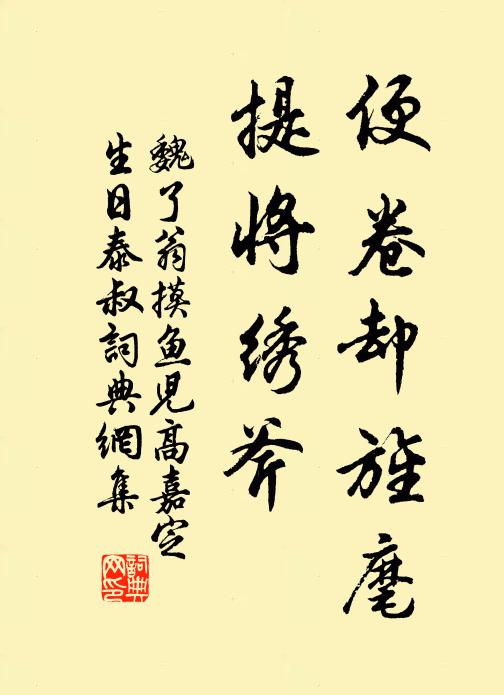 便卷却旌麾
提将绣斧
魏了翁摸鱼児高嘉定
生日泰叔詞典網集
詞典网印